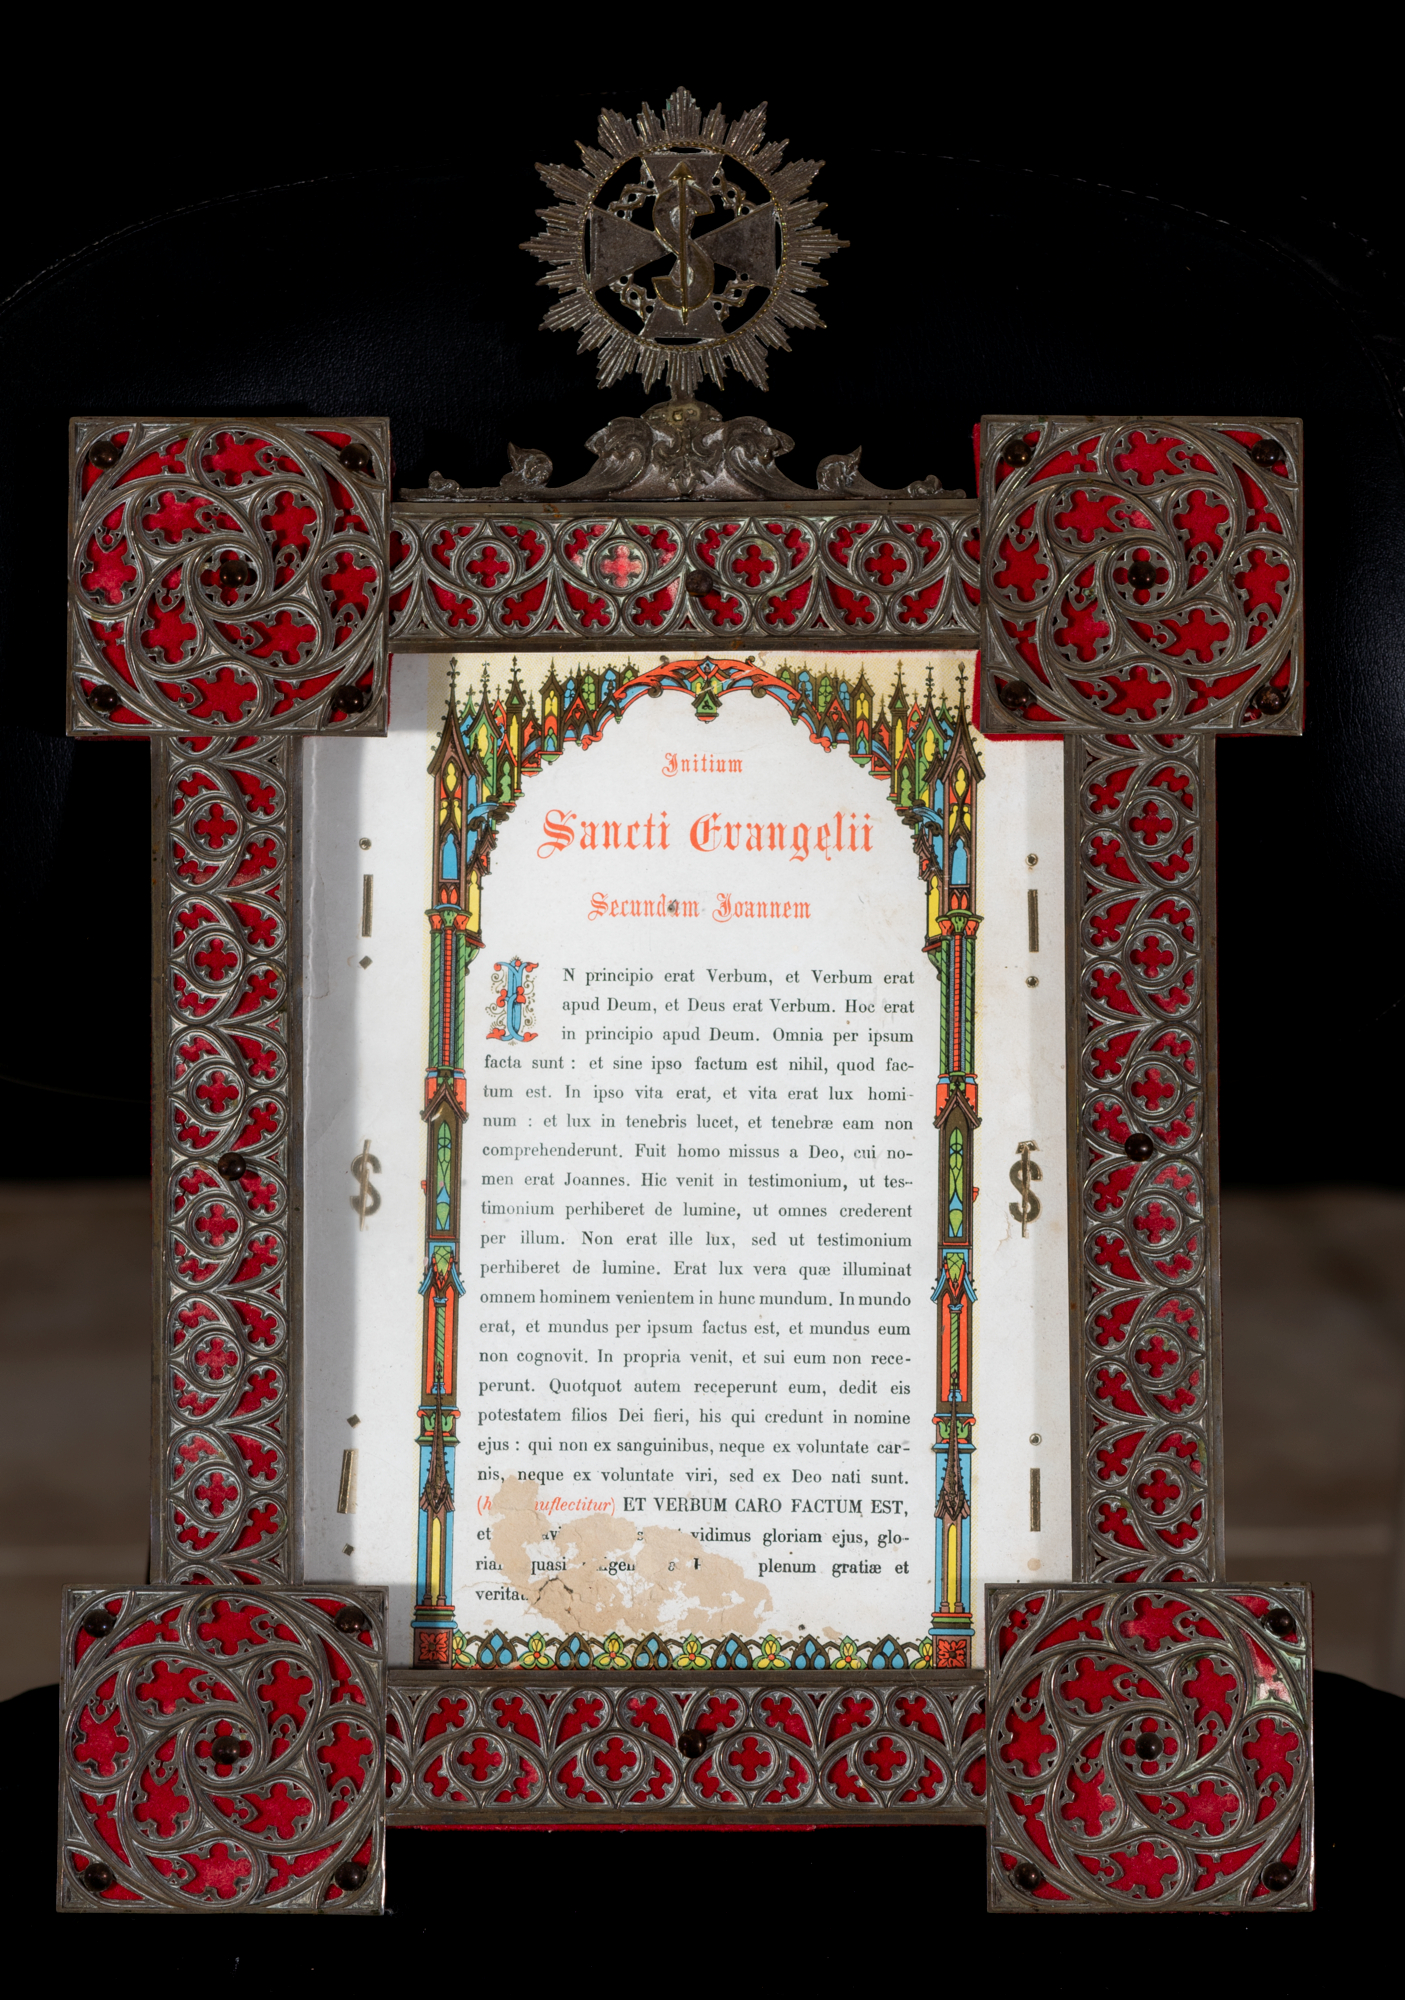 Initium
Sancti Evangelii
Secundum Joannem
IN principio erat Verbum, et Verbum erat
apud Deum, et Deus erat Verbum. Hoc erat
in principio apud Deum. Omnia per ipsum
facta sunt : et sine ipso factum est nihil, quod fac-
tum est. In ipso vita erat, et vita erat lux homi-
num : et lux in tenebris lucet, et tenebræ eam non
comprehenderunt. Fuit homo missus a Deo, cui no-
men erat Joannes. Hic venit in testimonium, ut tes-
timonium perhiberet de lumine, ut omnes crederent
per illum. Non erat ille lux, sed ut testimonium
perhiberet de lumine. Erat lux vera quæ illuminat
omnem hominem venientem in hunc mundum. In mundo
erat, et mundus per ipsum factus est, et mundus eum
non cognovit. In propria venit, et sui eum non rece-
perunt. Quotquot autem receperunt eum, dedit eis
potestatem filios Dei fieri, his qui credunt in nomine
ejus : qui non ex sanguinibus, neque ex voluntate car-
nis, neque ex voluntate viri, sed ex Deo nati sunt.
ET VERBUM CARO FACTUM EST,
et vidimus gloriam ejus, glo-
quasi plenum gratiæ et